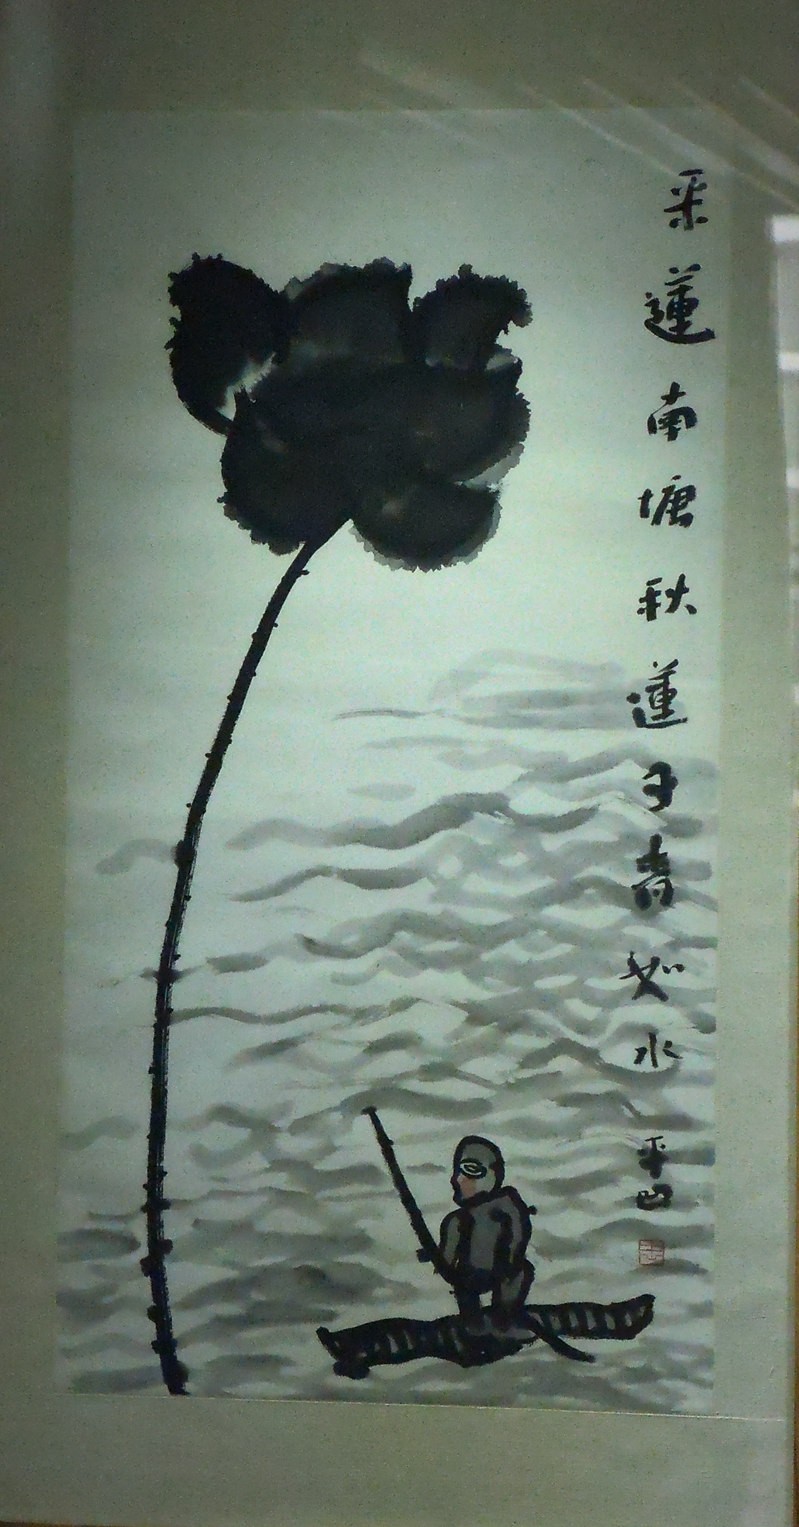 采蓮南塘秋蓮子青如水
平山